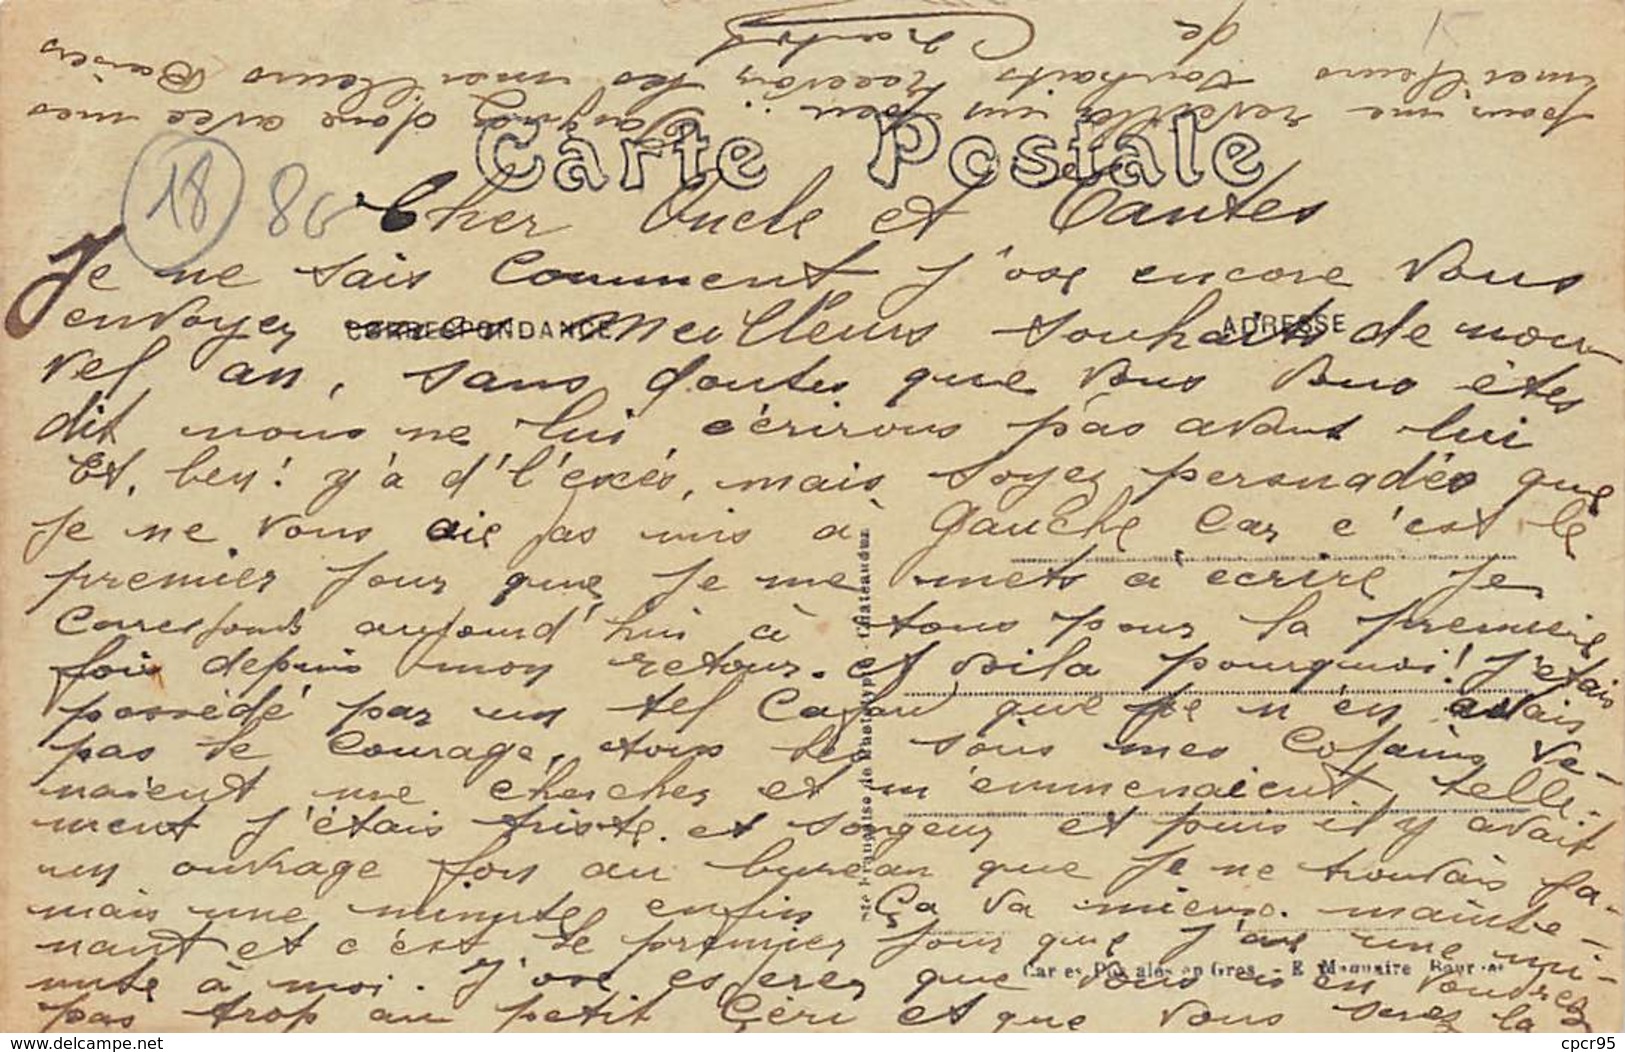 Carte Postale
18 86
Cher Oncle et Tantes
Je ne sais comment j'ose encore vous
envoyer meilleurs souhaits de nou-
vel an, sans doutes que vous vous êtes
dit nous ne lui écrirons pas avant lui
Et, ben! y'a d'l'excés, mais soyez persuadés que
je ne vous aie pas mis à gauche car c'est le
premier jour que je me mets à écrire je
corresponds aujourd'hui à tous pour la première
fois depuis mon retour. et voila pourquoi! J'étais
possédé par un tel cafard que je n'en avais
pas le courage, tous les soirs mes copains ve-
naient me chercher et m'emmenaient telle-
ment j'étais triste et songeur et puis il y avait
un ouvrage fou au bureau que je ne trouvais ja-
mais une minute enfin ça va mieux mainte-
nant et c'est le premier jour que j'aie une mi-
nute à moi. J'ose esperer que vous en voudrez
pas trop au petit Géri et que vous serez là
pour me reveiller un peu !! Daignez donc avec mes
meilleurs souhaits recevoir les meilleurs Baisers
de
CORRESPONDANCE
ADRESSE
Sté Française de Phototypie - Chateaudun
Cartes Postales en Gros - E. Maquaire Bourges
cpcr95